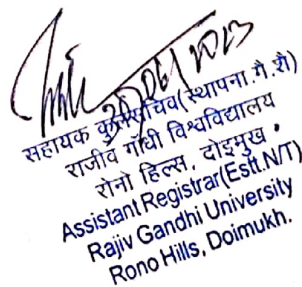 30/06/2023
सहायक कुलसचिव(स्थापना.गै.शै)
राजीव गाँधी विश्वविद्यालय
रोनो हिल्स, दोइमुख,
Assistant Registrar(Estt.N/T)
Rajiv Gandhi University
Rono Hills, Doimukh.